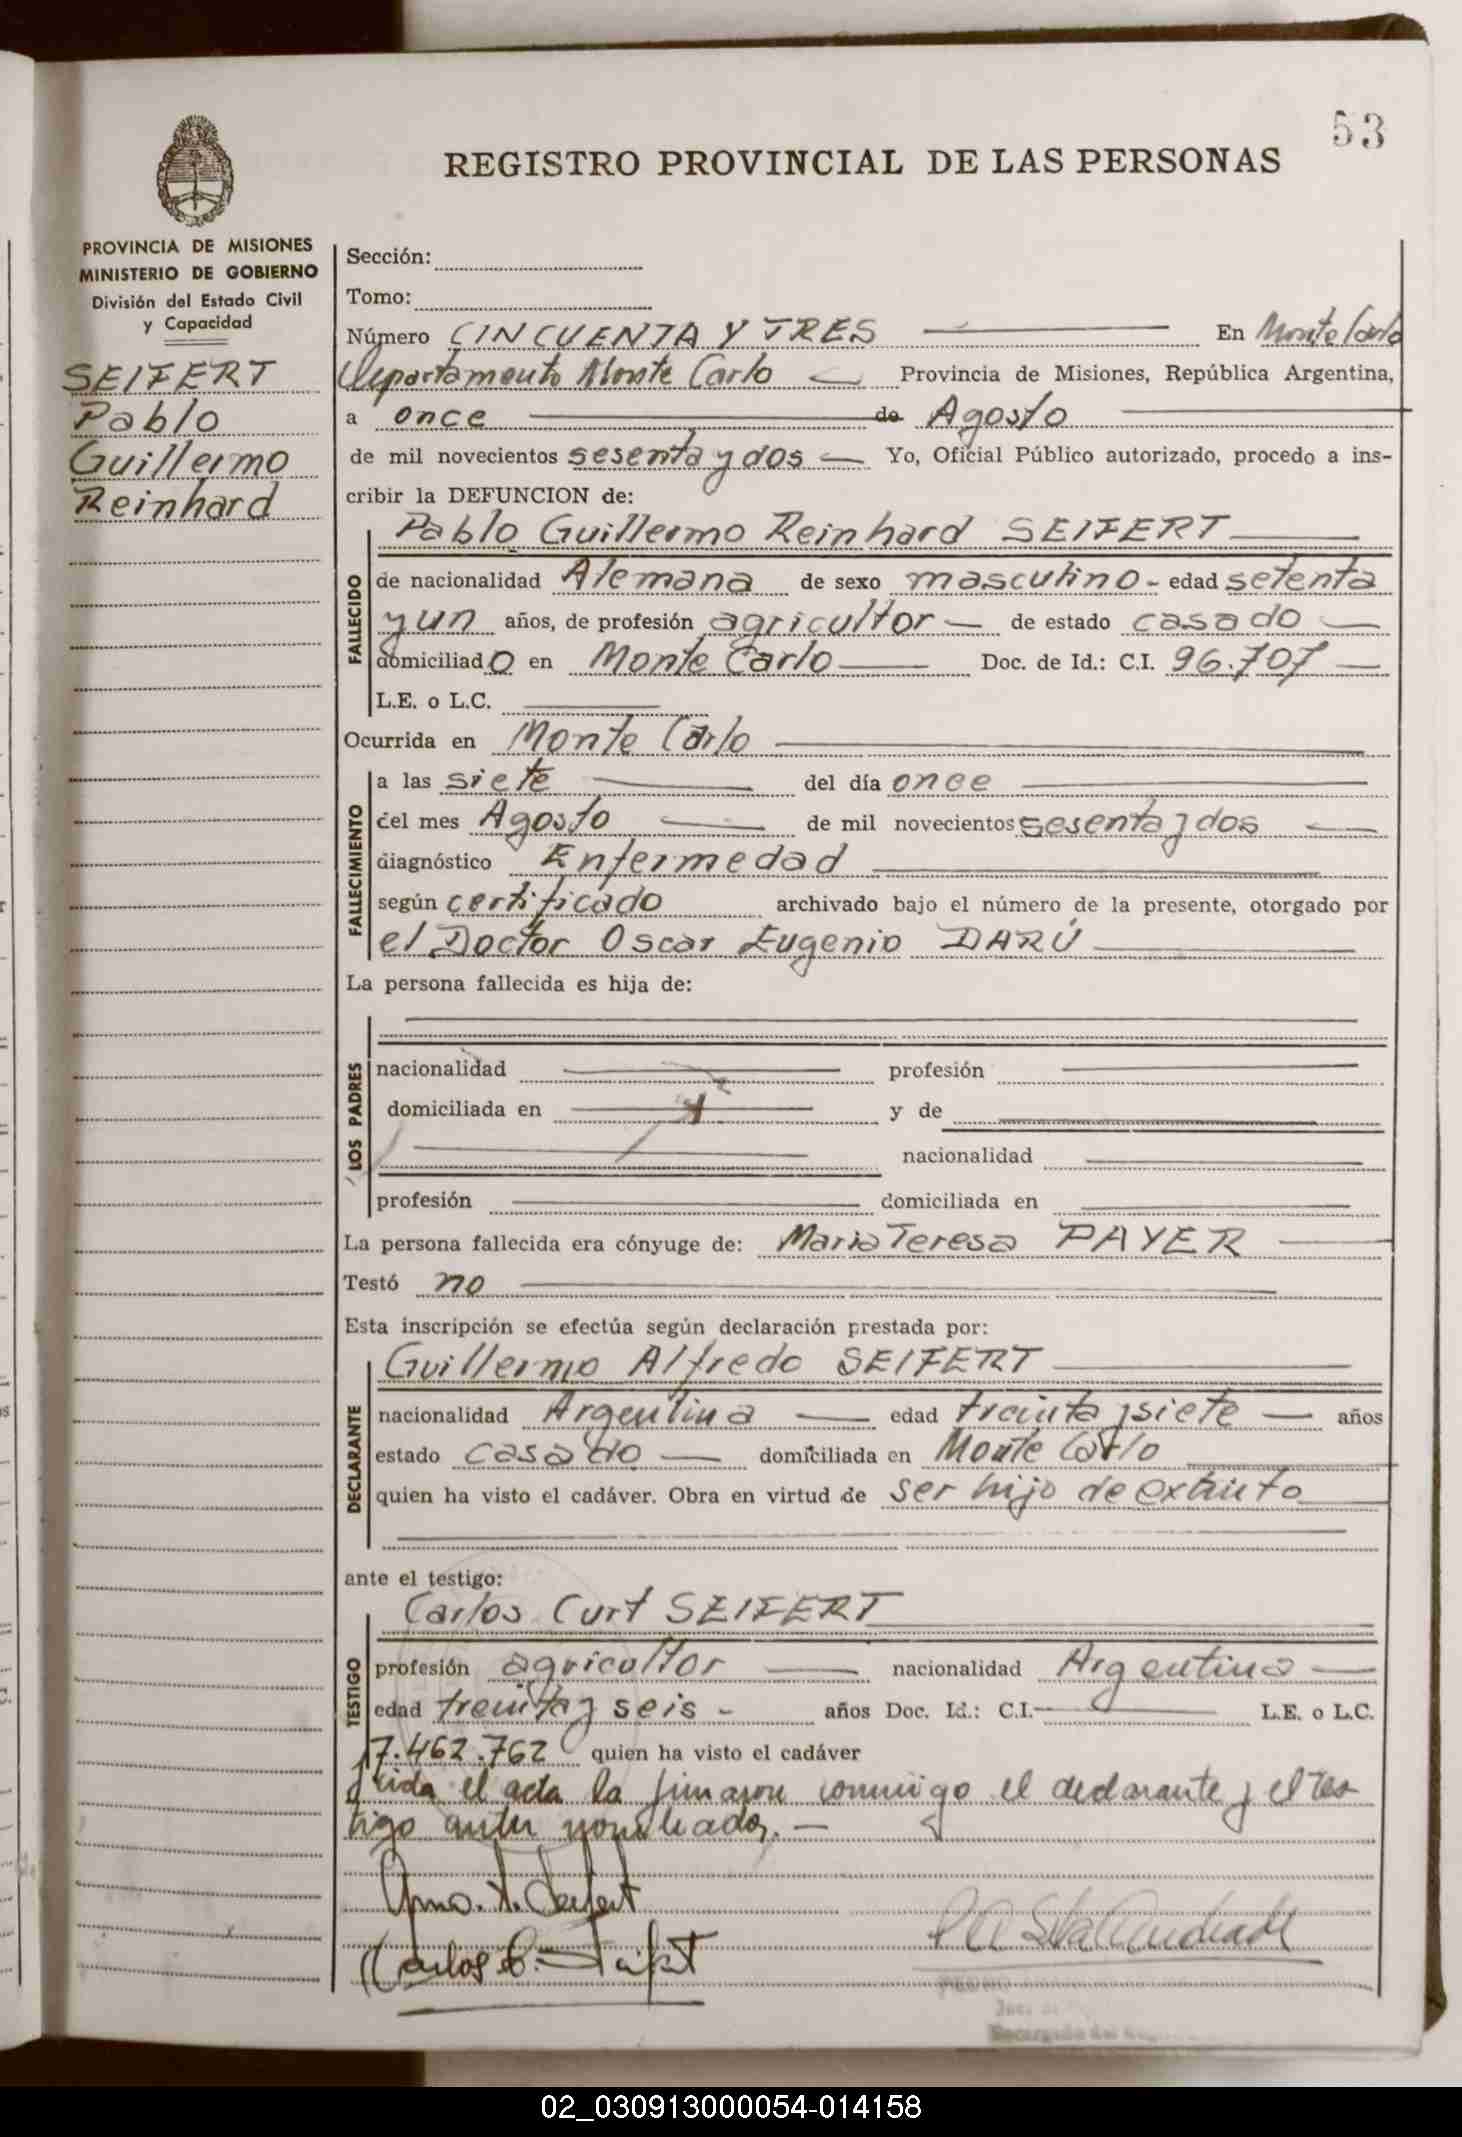 53
REGISTRO PROVINCIAL DE LAS PERSONAS
PROVINCIA DE MISIONES
MINISTERIO DE GOBIERNO
División del Estado Civil
y Capacidad
SEIFERT
Pablo
Guillermo
Reinhard
Sección:
Tomo:
Número CINCUENTA Y TRES En Monte Carlo
Departamento Monte Carlo Provincia de Misiones, República Argentina,
a once de Agosto
de mil novecientos sesenta y dos Yo, Oficial Público autorizado, procedo a ins-
cribir la DEFUNCION de:
FALLECIDO
Pablo Guillermo Reinhard SEIFERT
de nacionalidad Alemana de sexo masculino - edad setenta
y un años, de profesión agricultor de estado casado
domiciliado en Monte Carlo Doc. de Id.: C.I. 96.707
L.E. o L.C.
Ocurrida en Monte Carlo
FALLECIMIENTO
a las siete del día once
del mes Agosto de mil novecientos sesenta y dos
diagnóstico Enfermedad
según certificado archivado bajo el número de la presente, otorgado por
el Doctor Oscar Eugenio DARÚ
La persona fallecida es hija de:
LOS PADRES
nacionalidad profesión
domiciliada en y de
nacionalidad
profesión domiciliada en
La persona fallecida era cónyuge de: Maria Teresa PAYER
Testó no
Esta inscripción se efectúa según declaración prestada por:
DECLARANTE
Guillermo Alfredo SEIFERT
nacionalidad Argentina edad treinta y siete años
estado casado domiciliada en Monte Carlo
quien ha visto el cadáver. Obra en virtud de ser hijo de extinto
ante el testigo:
TESTIGO
Carlos Curt SEIFERT
profesión agricultor nacionalidad Argentina
edad treinta y seis - años Doc. Id.: C.I. L.E. o L.C.
7.462.762 quien ha visto el cadáver
Leida el acta la firmaron conmigo el declarante y el tes
tigo antes nombrados. -
Gmo. A. Seifert
Carlos C. Seifert
Encargado del
02_030913000054-014158